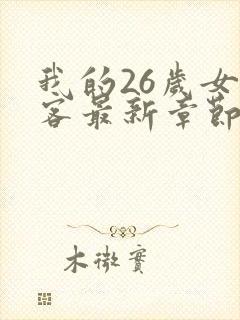 我的26歲女
客最新章節
木微實